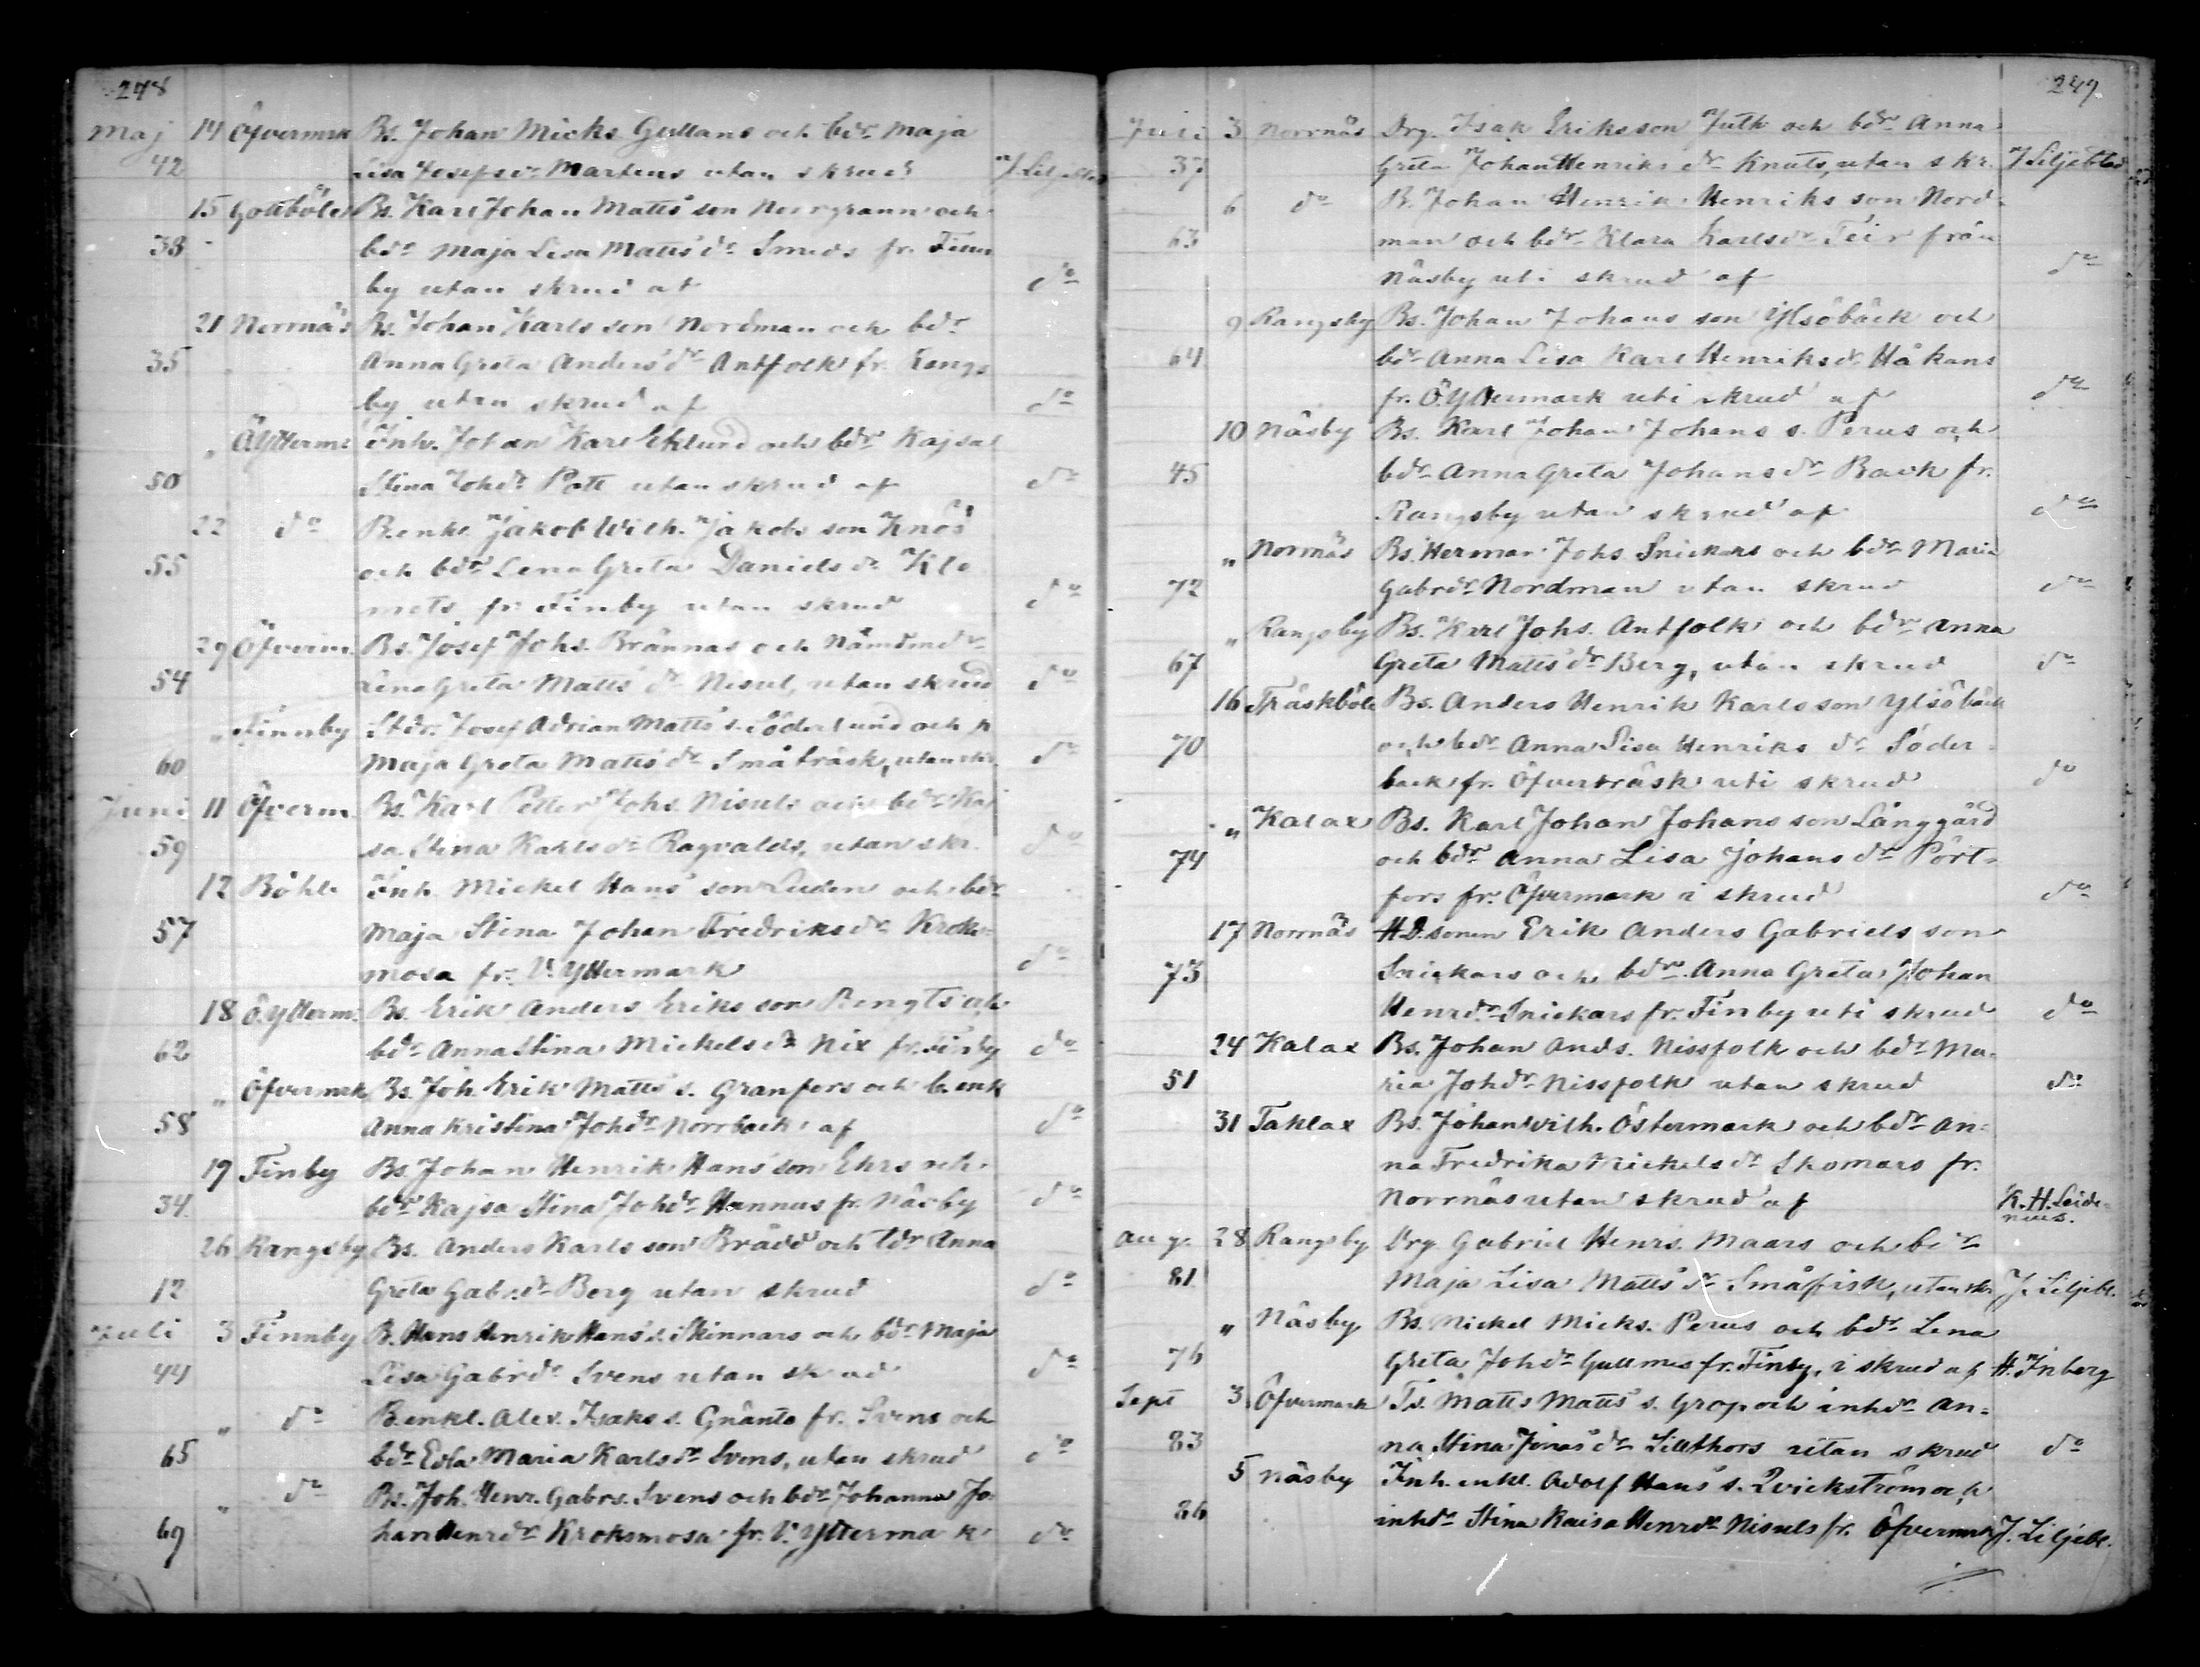 248
Maj 14 Öfvermrk Bs. Johan Micks Gullans och bdr Maja
42 Lisa Josefsdr Martens utan skrud J Liljebl
15 Gottböle Bs. Karl Johan Matts'son Norrgrann och
38 bdr Maja Lisa Matts'dr Smeds fr. Finn
by utan skrud af do
21 Norrnäs Bs. Johan Karlsson Nordman och bdr
35 Anna Greta Anders'dr Antfolk fr. Rangs
by utan skrud af do
" ÖYtterm: Inh. Johan Karl Eklund och bdr Kajsa
50 Stina Johdr Pott utan skrud af do
22 do B.enkl. Jakob Wilh. Jakobsson Knös
55 och bdr Lena Greta Danielsdr Kle
mets fr Finby utan skrud do
29 Öfverm. Bs. Josef Johs. Brännas och Nämdmdr
54 Lena Greta Matts'dr Nisul, utan skrud do
" Finnby Stdr. Josef Adrian Matts's. Söderlund och p
60 Maja Greta Matts'dr Småträsk, utan skr. do
Juni 11 Öfverm. Bs. Karl Petter Johs. Nisuls och bdr Kaj
59 sa Stina Karlsdr Ragvalds, utan skr. do
12 Böhle Inh. Mickel Hans'son Luden och bdr
57 Maja Stina Johan Fredriksdr Kroks-
mosa fr. V. Yttermark do
18 Ö.Ytterm. Bs. Erik Anders Eriksson Bengts och
62 bdr Anna Stina Mickelsdr Nix fr. Finby do
" Öfvermrk Bs. Joh Erik Matts's. Granfors och b.enk
58 Anna Kristina Johdr Norrback af do
19 Finby Bs. Johan Henrik Hans'son Ehrs och
34 bdr Kajsa Stina Johdr Hannus fr. Näsby do
26 Rangsby Bs. Anders Karlsson Brädd och tdr Anna
12 Greta Gabr.dr Berg utan skrud do
Juli 3 Finnby B. Hans Henrik Hans's. Skinnars och bdr Maja
44 Lisa Gabrdr Svens utan skrud do
" do B.enkl. Alex. Isaks s. Gnänto fr. Svens och
65 bdr Edla Maria Karlsdr Svens, utan skrud do
" do Bs. Joh. Henr. Gabrs. Svens och bdr Johanna Jo
69 han Henrdr Kroksmosa fr. V. Yttermark do
249
Juli 3 Norrnäs Drg. Isak Eriksson Juth och bdr Anna
37 Greta Johan Henriks dr Knuts, utan skr. J Liljeblad
6 do B. Johan Henrik Henriksson Nord-
63 man och bdr Klara Karlsdr Teir från
Näsby uti skrud af do
9 Rangsby Bs. Johan Johansson Ylsöbäck och
64 bdr Anna Lisa Karl Henriksdr Håkans
fr. Ö.Yttermark uti skrud af do
10 Näsby Bs. Karl Johan Johans s. Perus och
45 bdr Anna Greta Johansdr Back fr.
Rangsby utan skrud af do
" Norrnäs Bs. Herman Johs Snickars och bdr Maria
72 Gabrdr Nordman utan skrud do
" Rangsby Bs. Karl Johs. Antfolk och bdr Anna
67 Greta Matts'dr Berg, utan skrud do
16 Träskböle Bs. Anders Henrik Karlsson Ylsöbäck
70 och bdr Anna Lisa Henriks dr Söder-
back fr. Öfverträsk uti skrud do
" Kalax Bs. Karl Johan Johansson Långgård
74 och bdr Anna Lisa Johansdr Pört-
fors fr. Öfvermark i skrud do
17 Norrnäs H.D.sonen Erik Anders Gabrielsson
73 Snickars och bdr Anna Greta Johan
Henrdr Snickars fr. Finby uti skrud do
24 Kalax Bs. Johan Ands. Nissfolk och bdr Ma-
51 ria Johdr Nissfolk utan skrud do
31 Taklax Bs. Johan Wilh. Östermark och bdr An-
na Fredrika Mickelsdr Skomars fr.
Norrnäs utan skrud af K. H. Leide-
nius.
Aug. 28 Rangsby Drg Gabriel Henrs. Maars och bdr
81 Maja Lisa Matts'dr Småfisk, utan skr J. Liljebl.
" Näsby Bs. Mickel Micks. Perus och bdr Lena
76 Greta Johdr Gullmes fr. Finby, i skrud af H. Inberg
Sept 3 Öfvermark Ts. Matts Matts's. Grop och inhdr An-
83 na Stina Jonas'dr Lillthors utan skrud do
5 Näsby Inh. enkl. Adolf Hans's. Qvickström och
86 inhdr Stina Kaisa Henrdr Nisuls fr. Öfvermrk J. Liljebl.